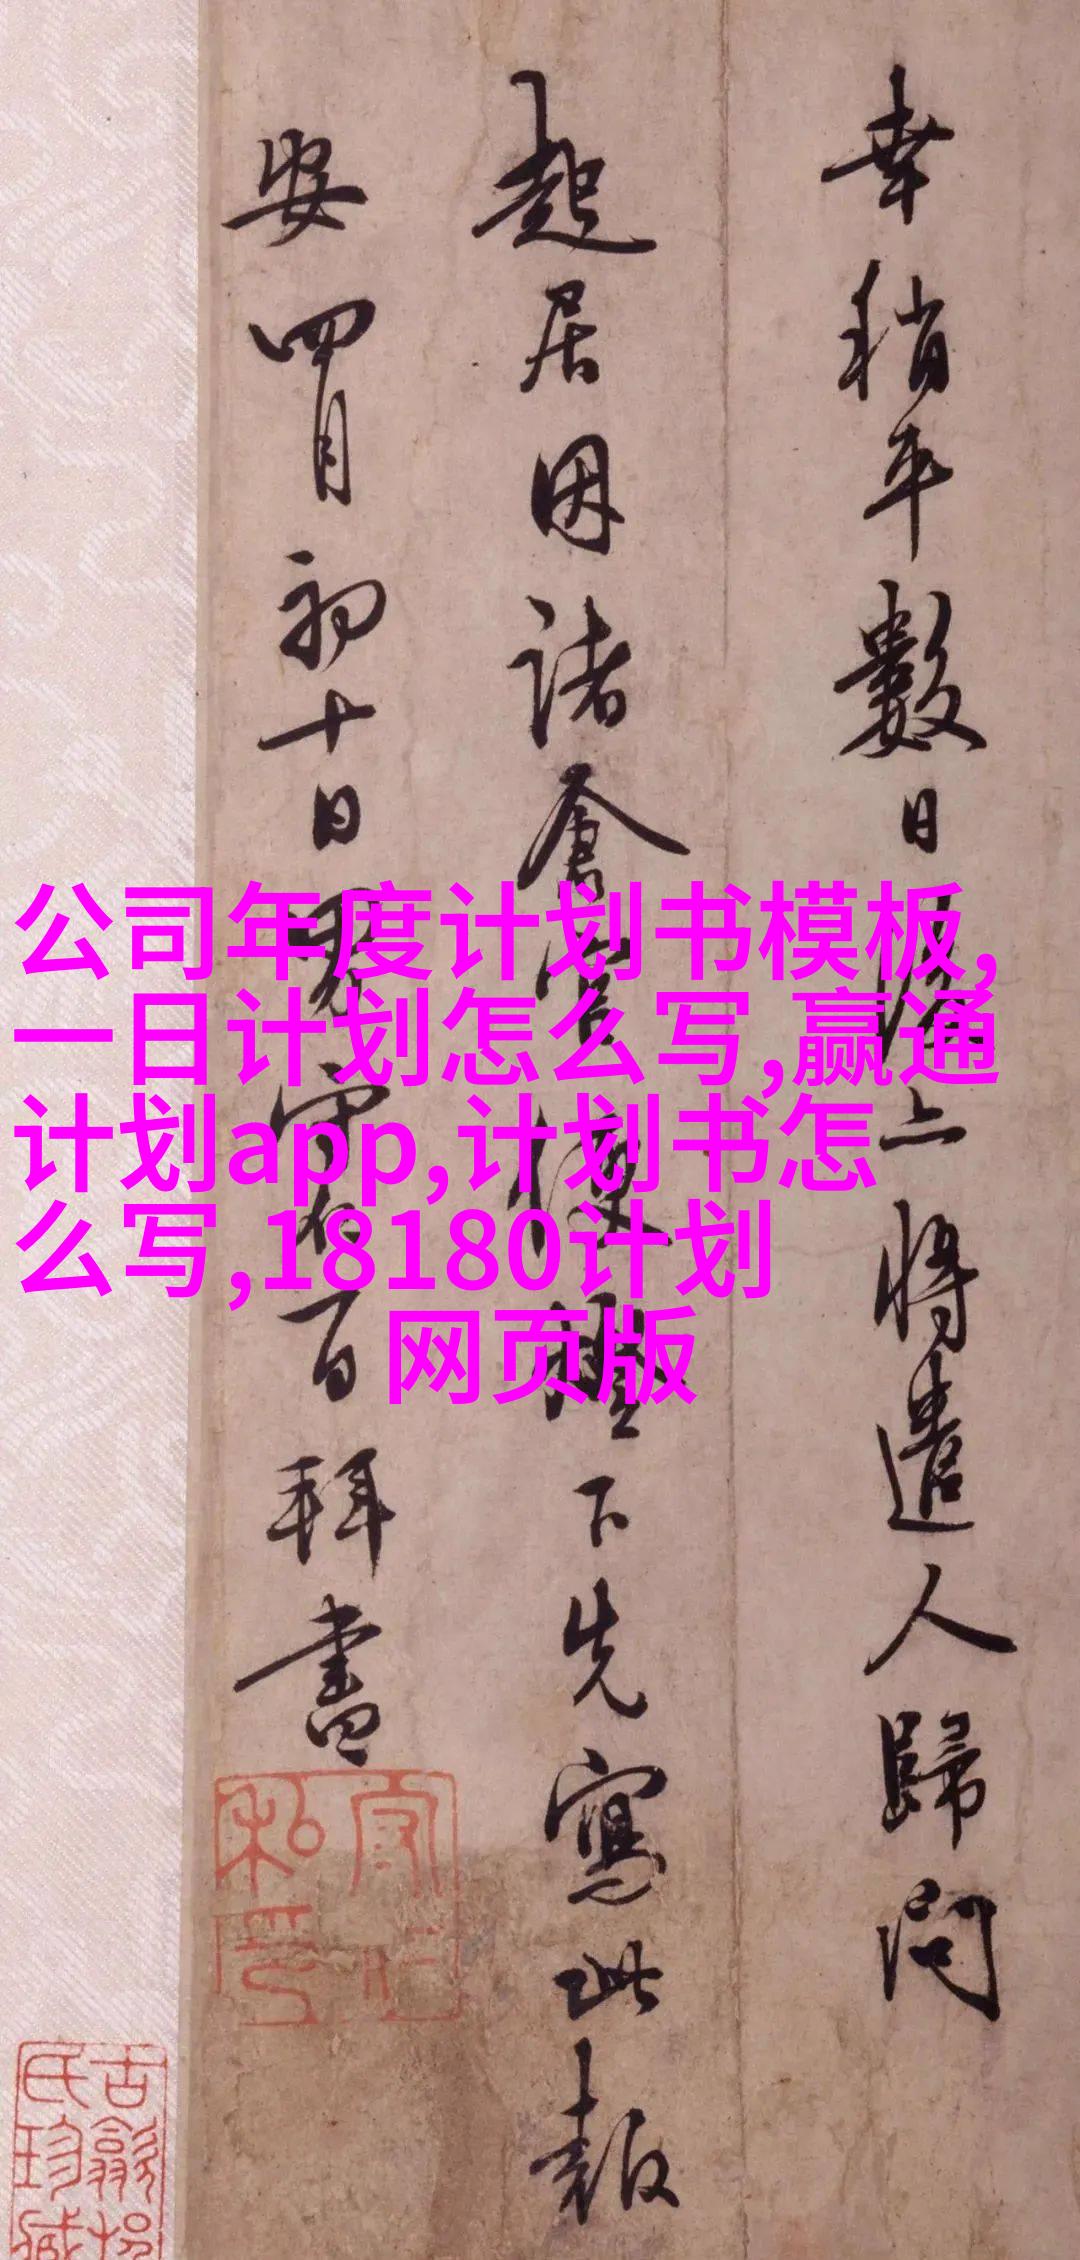 幸稍平數日上將遣人歸問
起居因諸倉官下先寫此報
安四月初十日男守百拜書
公司年度计划书模板,
一日计划怎么写,赢通
计划app,计划书怎
么写,18180计划
网页版
私印
古歙
氏珍藏